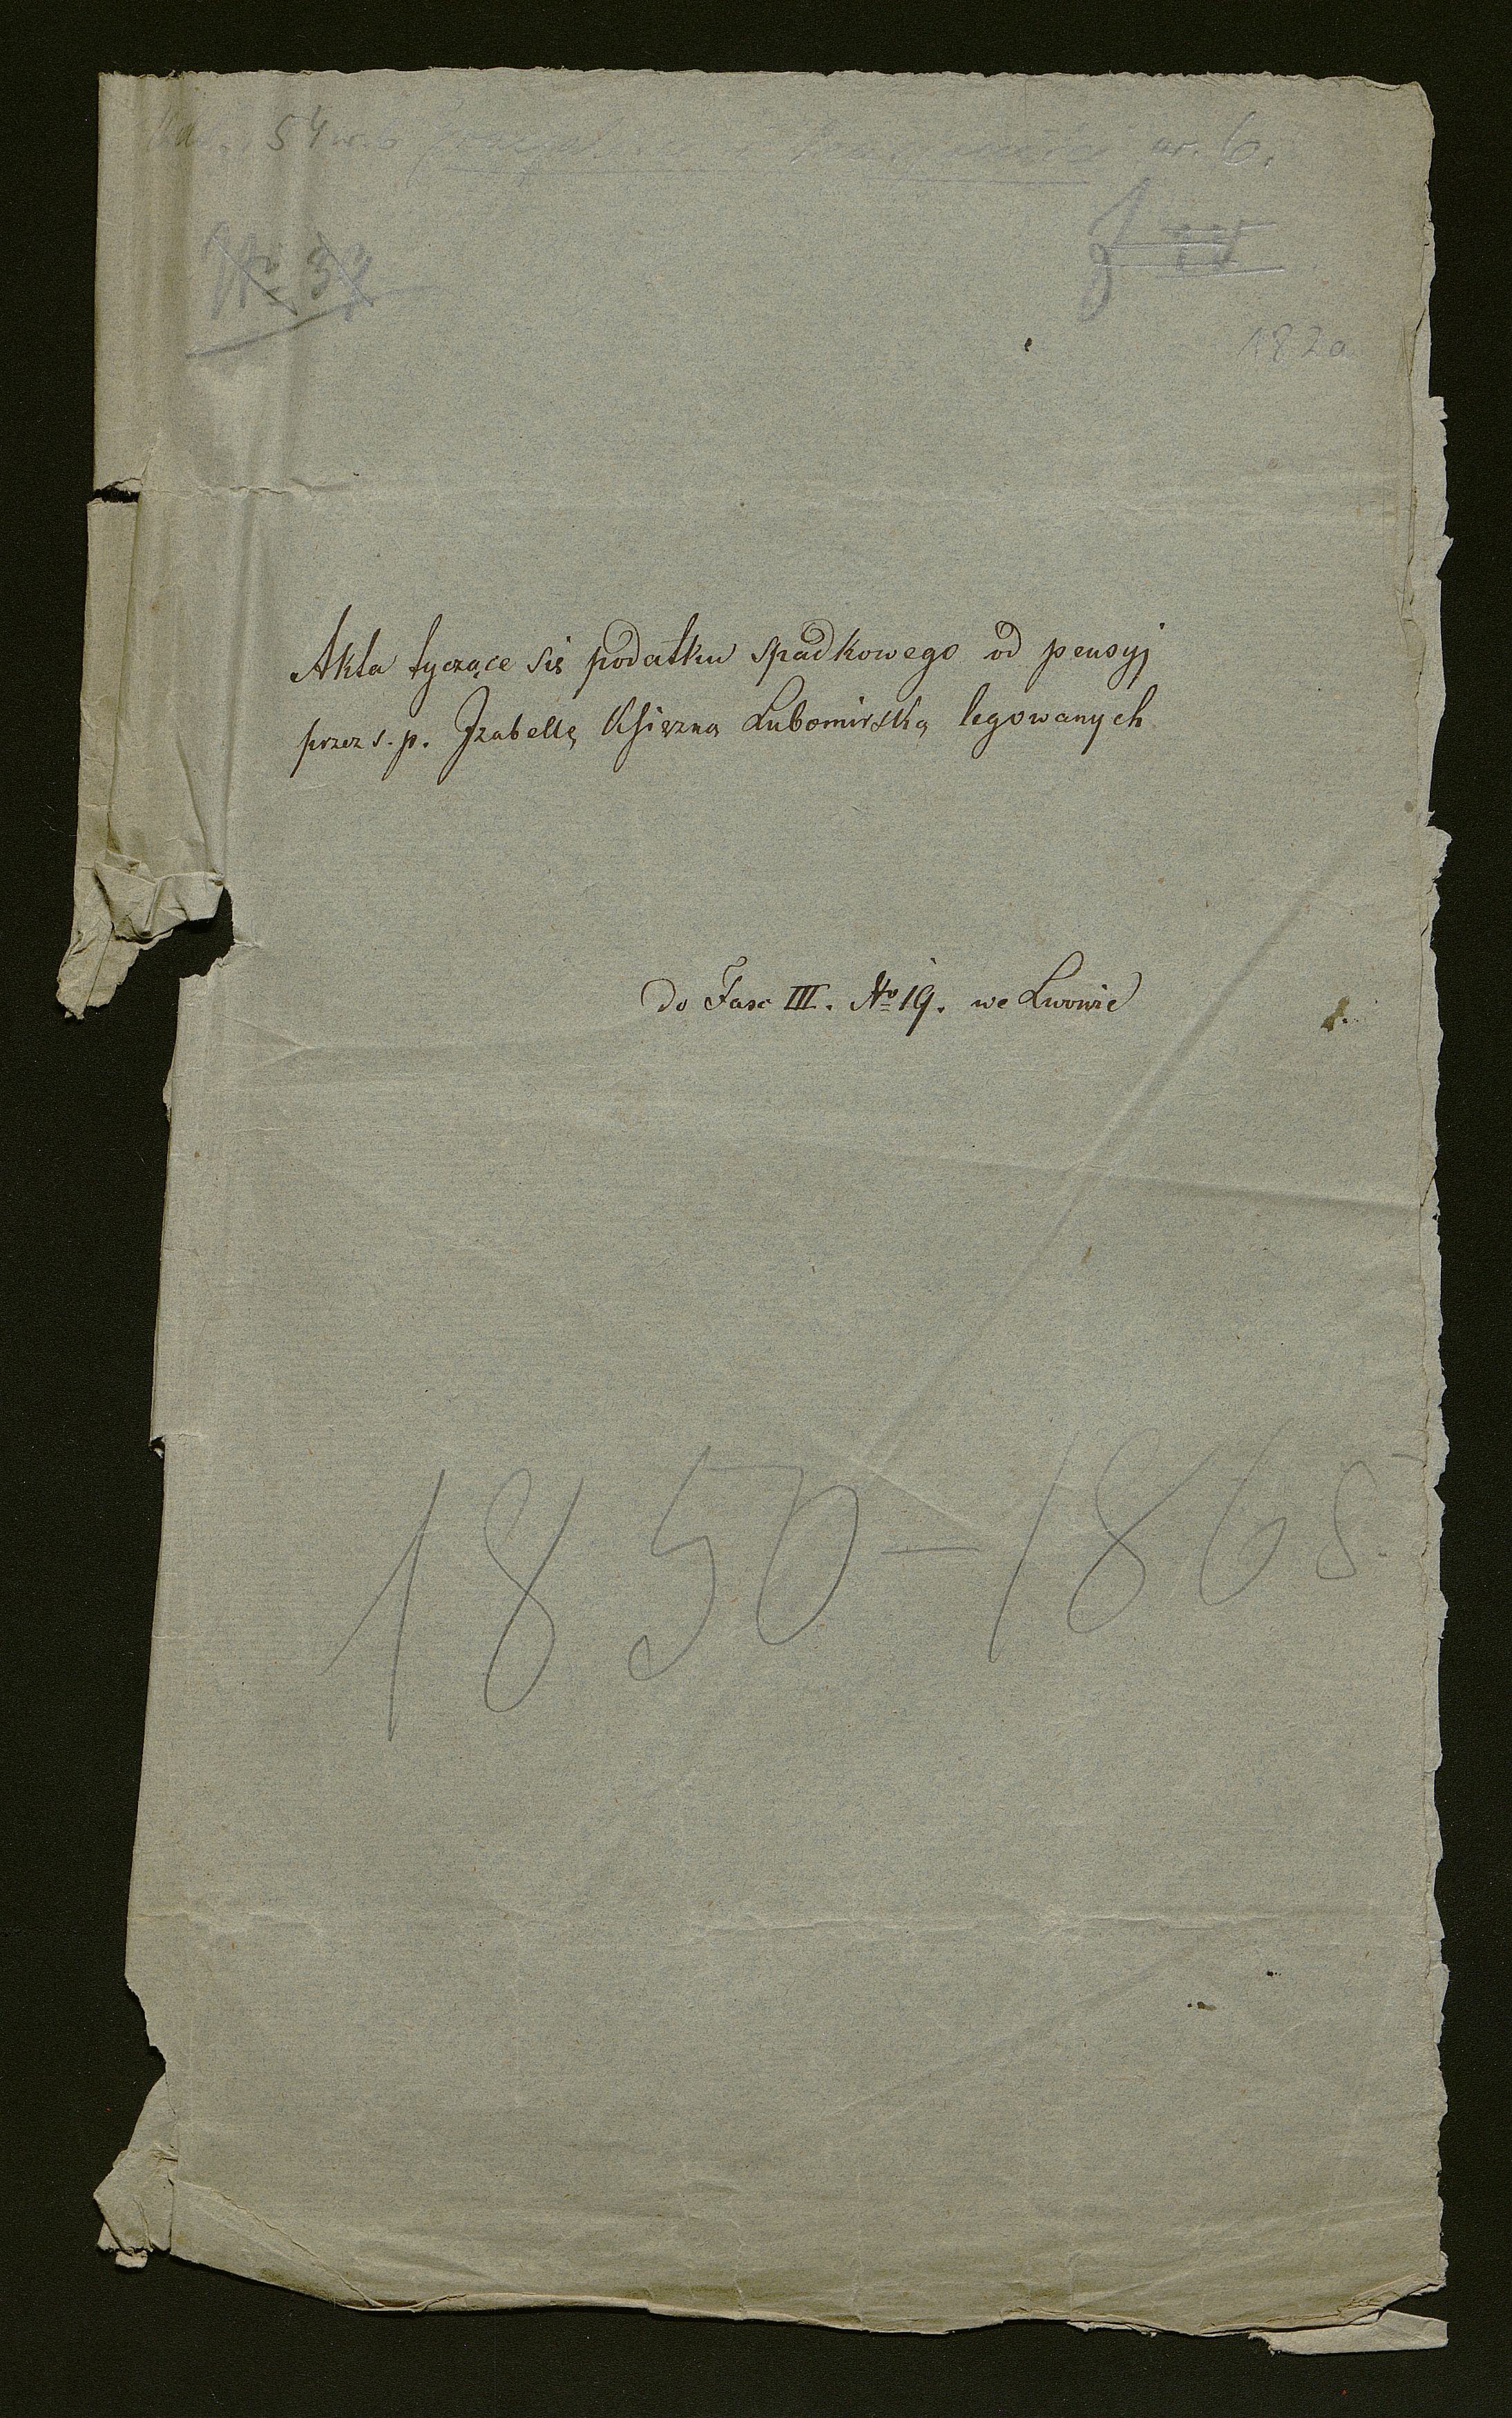 54 nr. 6.
No 37
f IV
1820
Akta tyczące się podatku spadkowego od pensyj
przez s. p. Izabellę Księżną Lubomirską legowanych
do Fasc III. No 19. we Lwowie
1850–1865